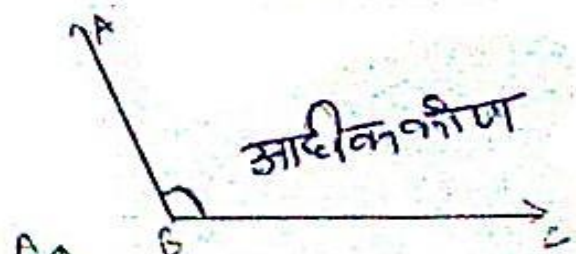 A
आधीक कोण
B
C